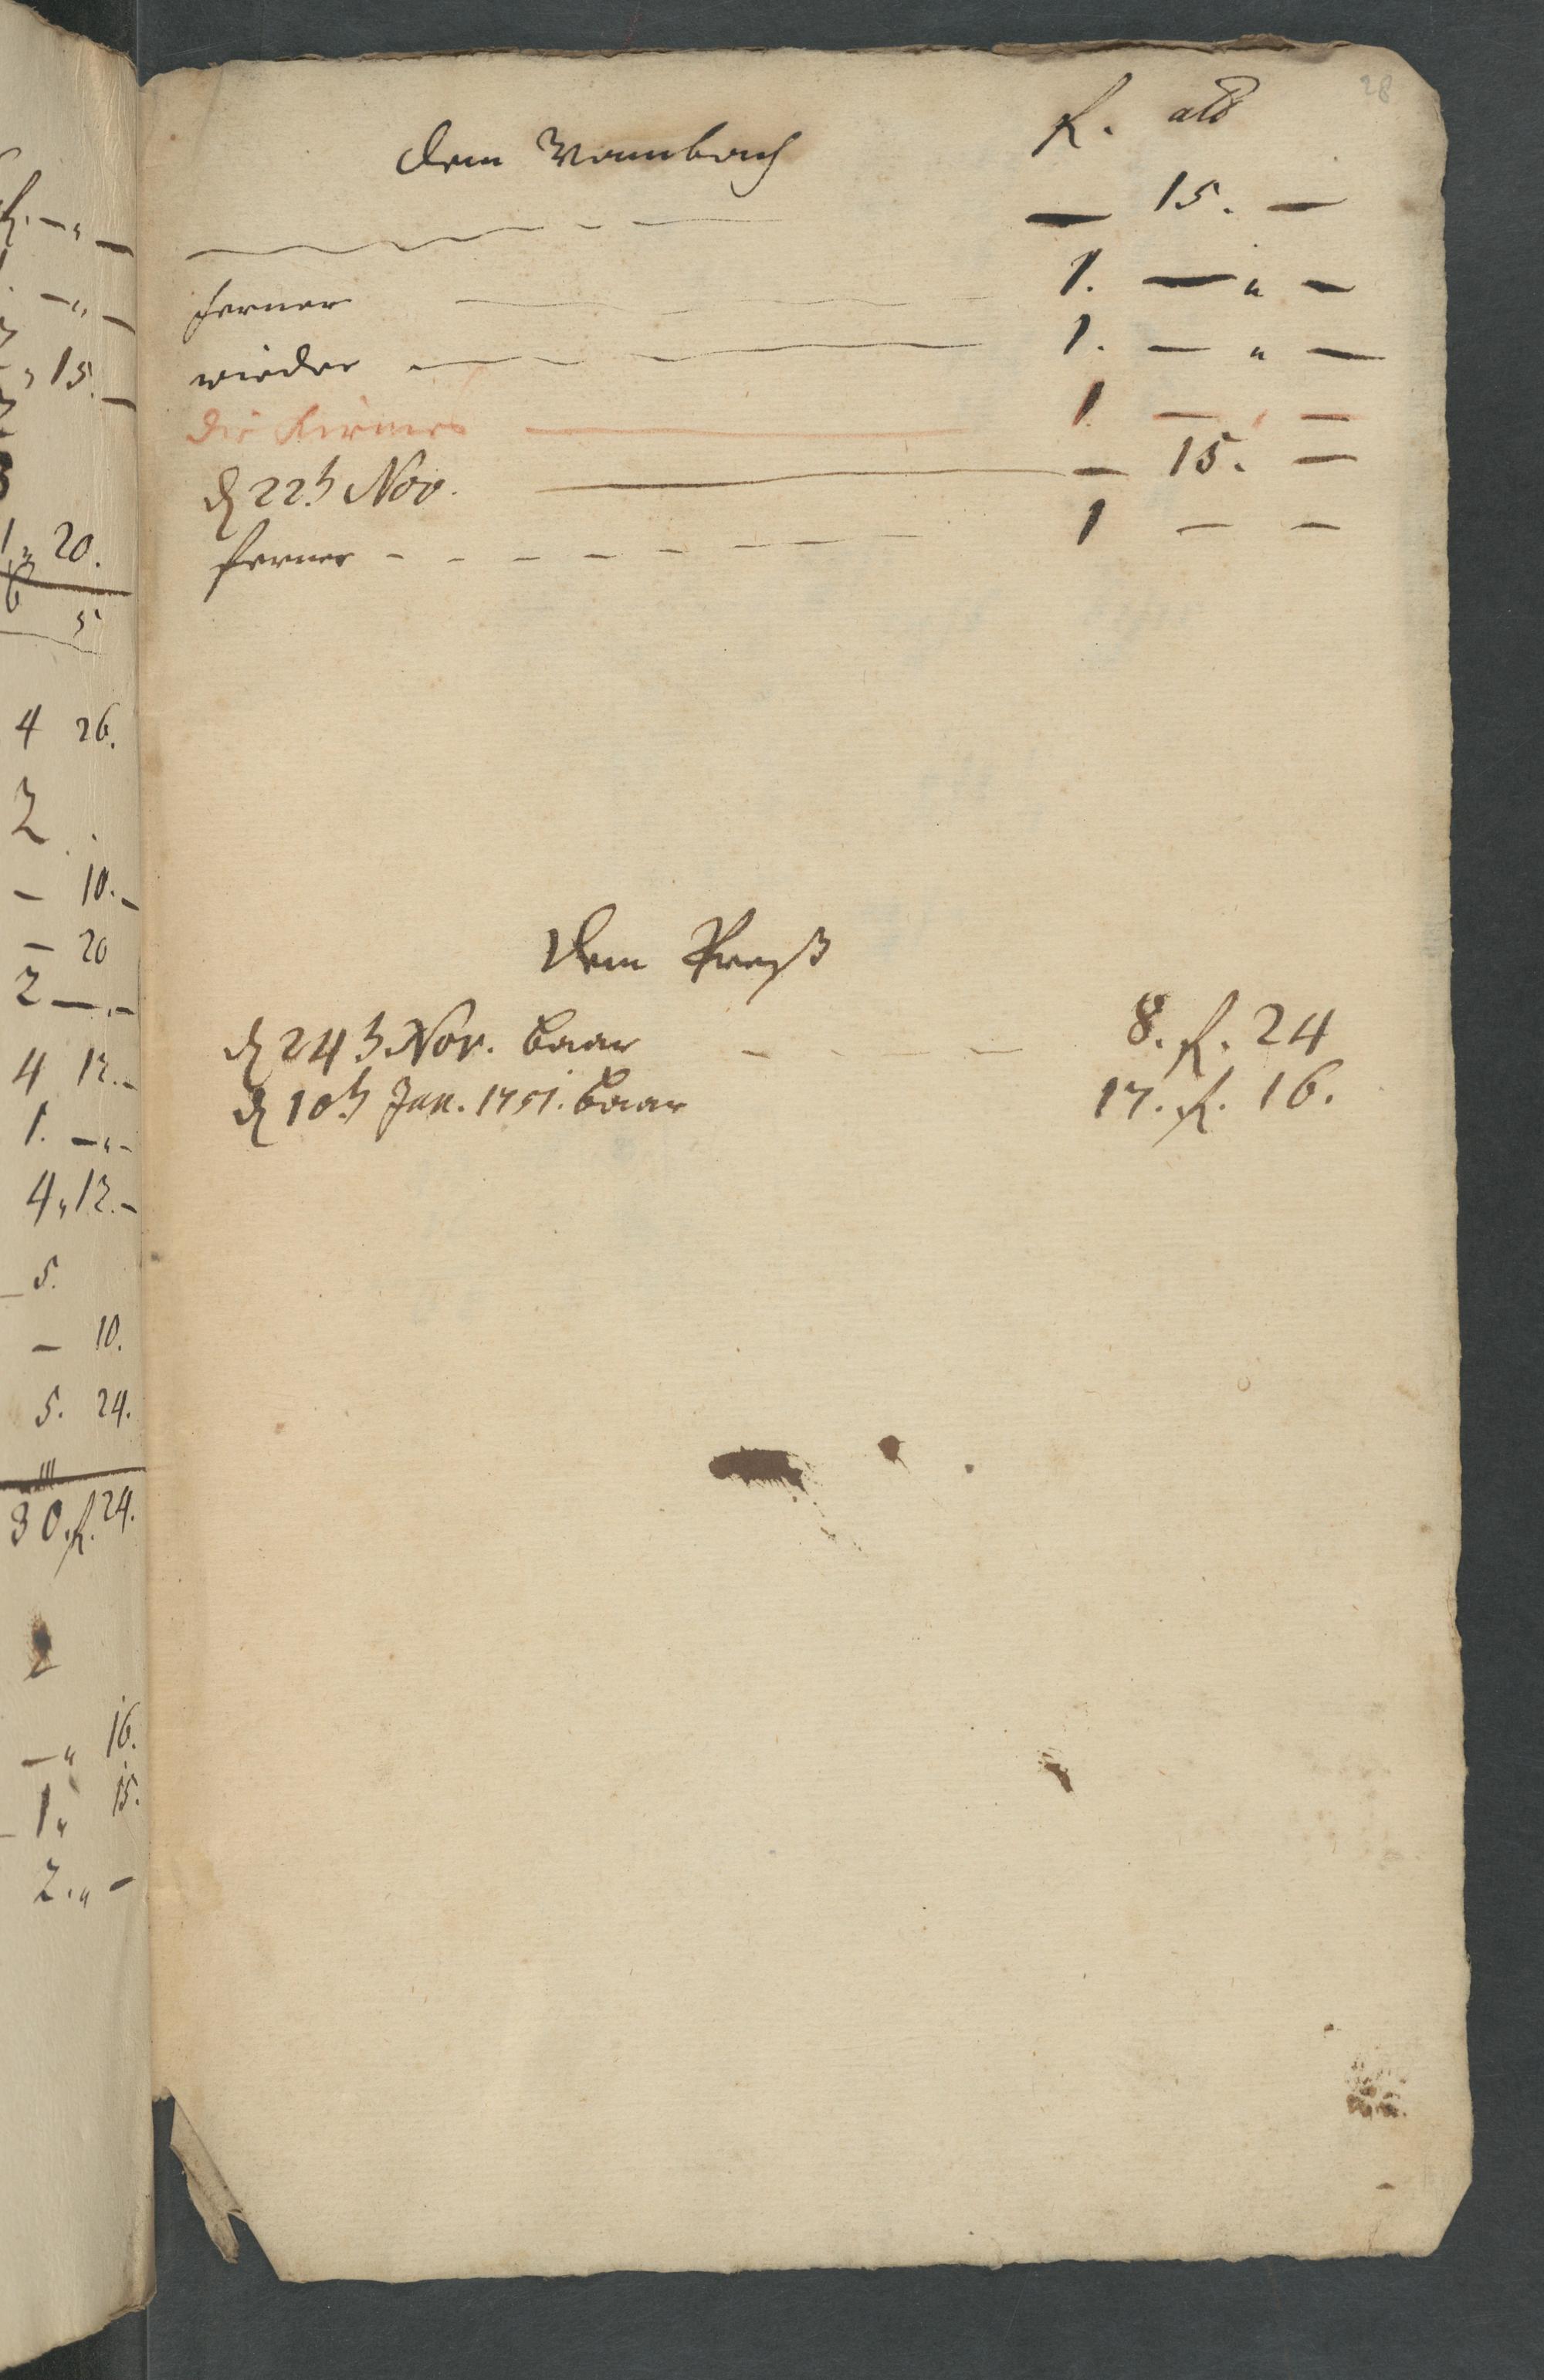 R. –„ –
–„ –
„ 15. –
1 „ 20.
6 5
4 26.
2 .
– 10. –
– 20
2 – . –
4 12. –
1. – „ –
4 „ 12. –
5.
– 10.
5. 24.
30. R. 24.
2
– „ 16.
1 „ 15.
2. „ –
28
R. alb
dem Wambach
— 15. —
ferner — 1. — „ —
wieder — 1. — „ —
die Kirmes — 1 — , —
d 22t Nov. — — 15. —
ferner - - - - - - - 1 — —
dem Preyß
d 24t Nov. baar - - - - 8. R. 24
d 10t Jan. 1751. baar 17. R. 16.